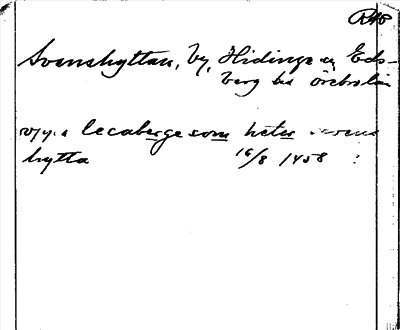 Svenshyttan, by, Hidinge sn, Eds-
berg hd örebro län
lecaberge som heter
hytta 16/8 1458